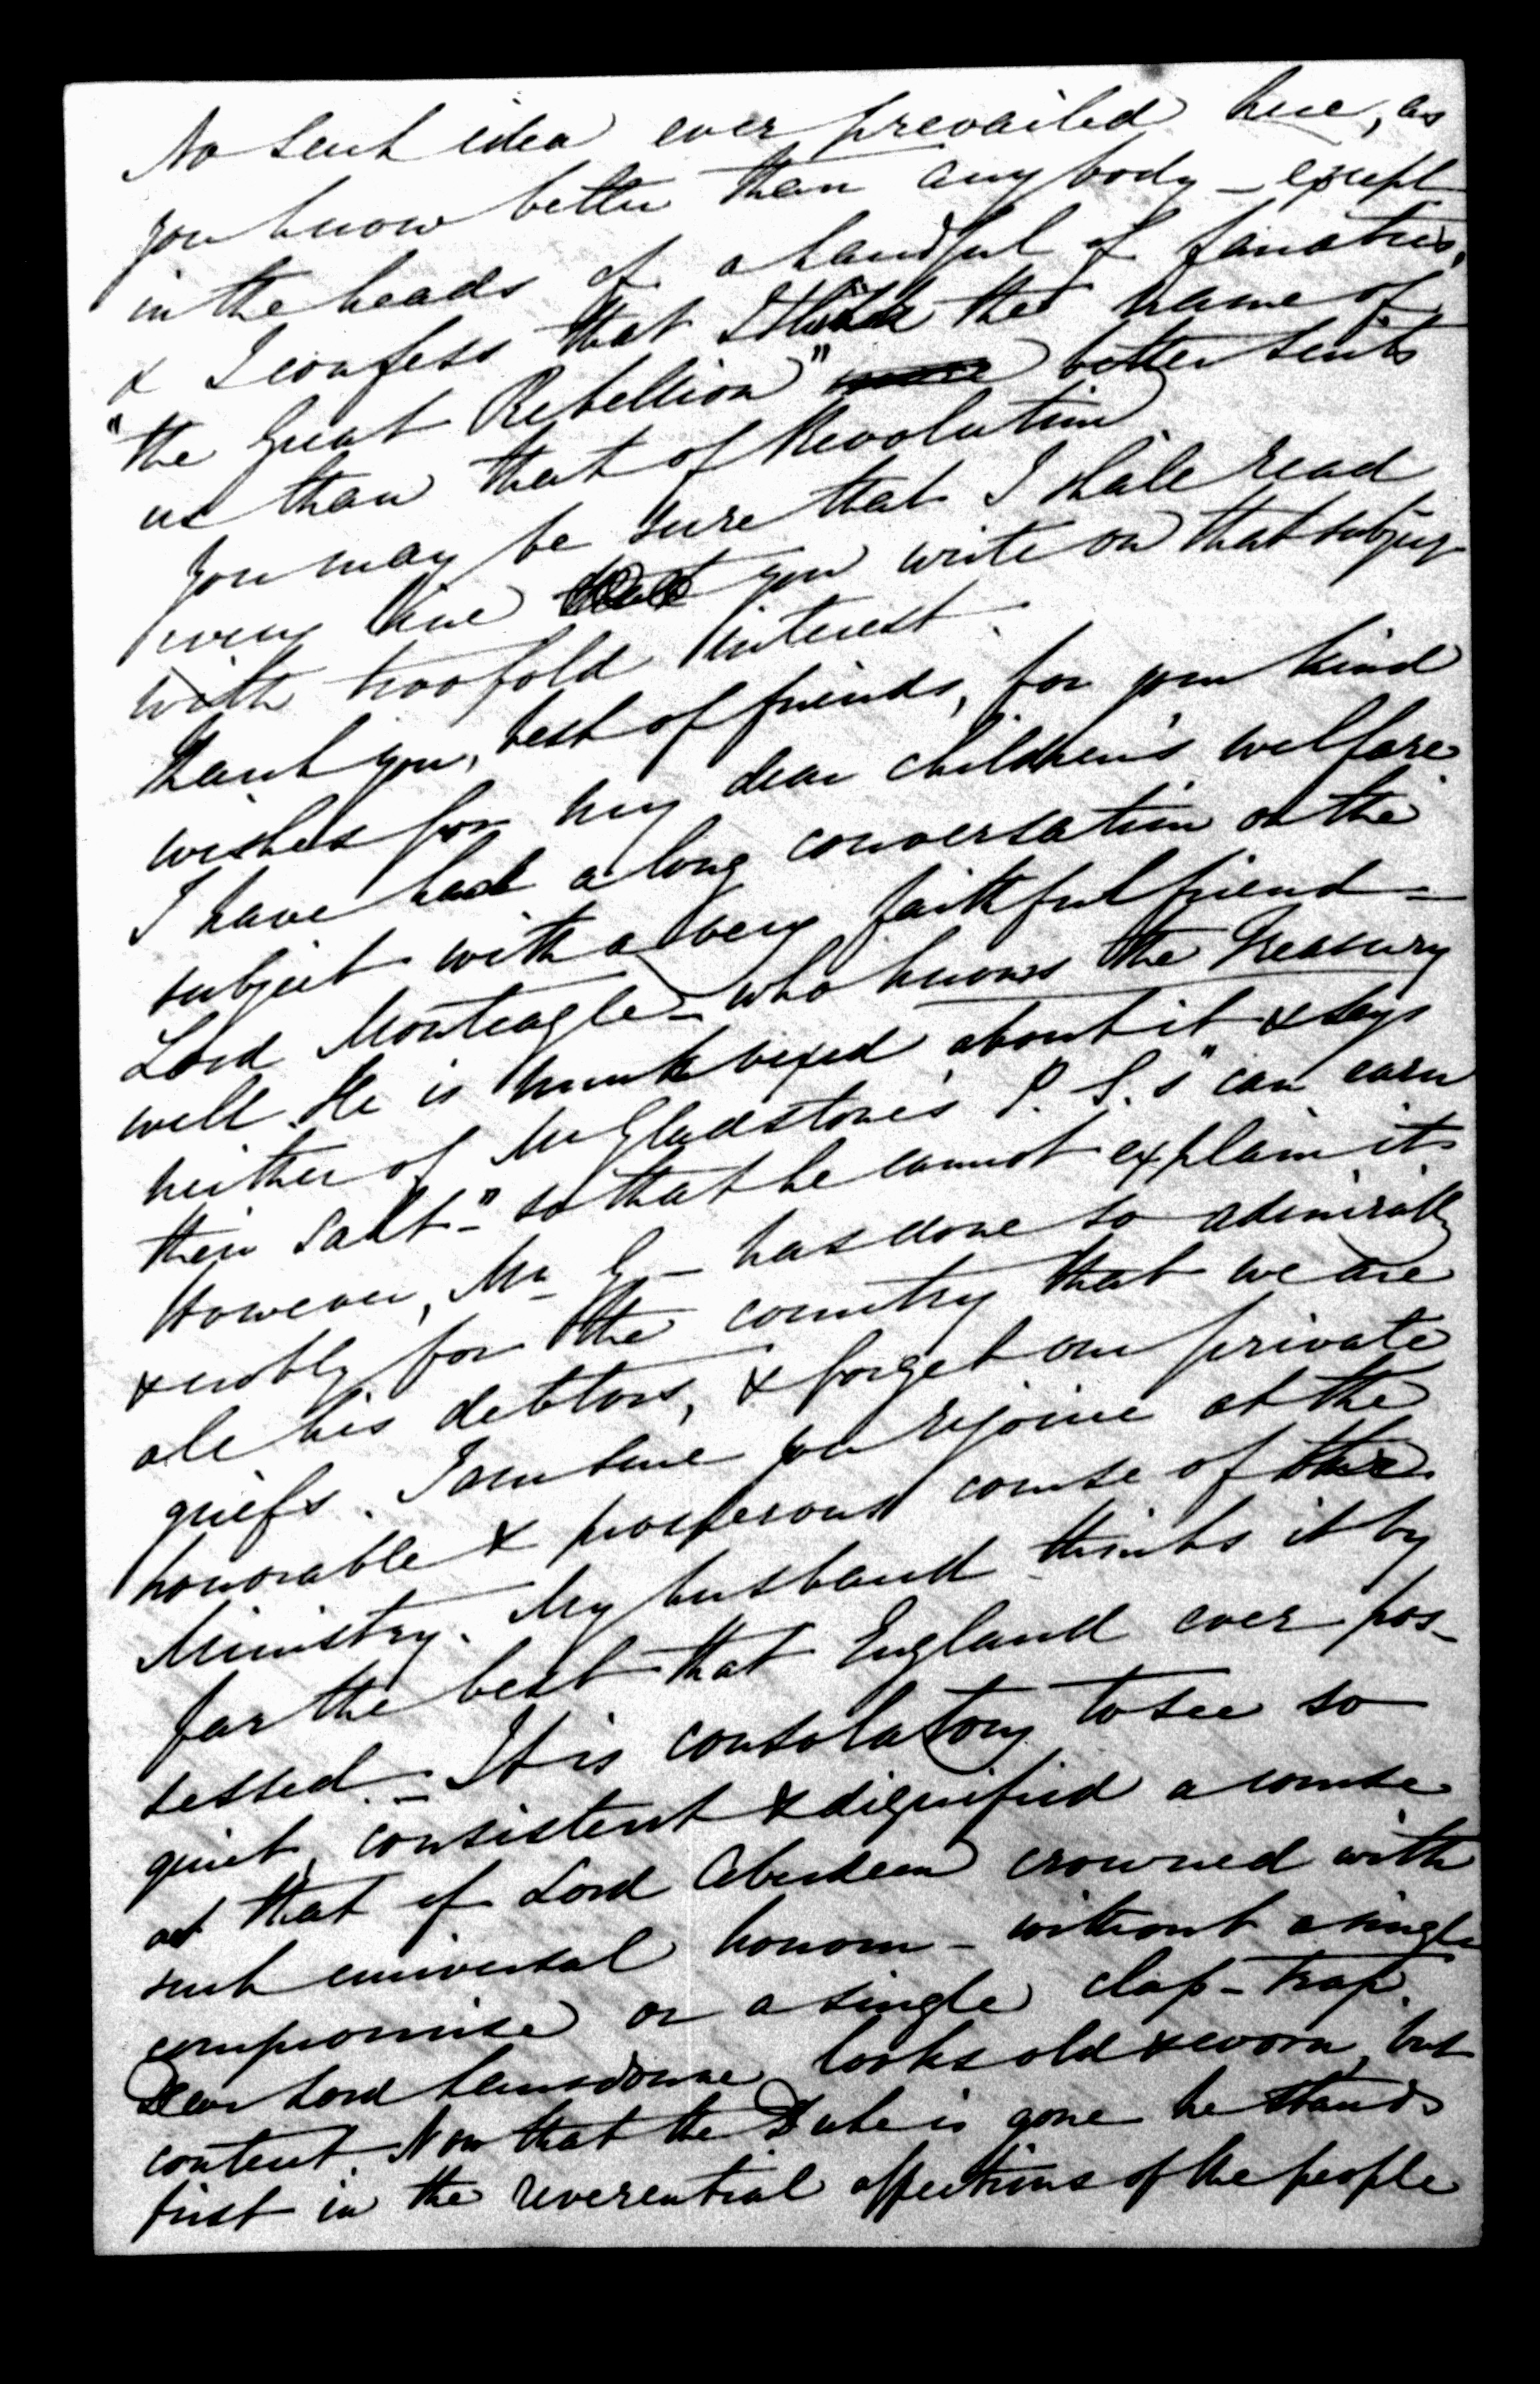 No such idea ever prevailed here, as
you know better than any body – except
in the heads of a handful of fanatics,
& I confess that I think the name of
"the Great Rebellion" better suits
us than that of Revolution.
You may be sure that I shall read
every line you write on that subject
with twofold interest.
Thank you, best of friends, for your kind
wishes for my dear children's welfare
I have had a long conversation on the
subject with a very faithful friend –
Lord Monteagle – who knows the Treasury
well. He is much vexed about it & says
neither of Mr Gladstone's P. S.'s "can earn
their salt –" so that he cannot explain it.
However, Mr G – has done so admirably
& nobly for the country that we are
all his debtors, & forget our private
griefs. I am sure you rejoice at the
honorable & prosperous course of this
Ministry. My husband thinks it by
far the best that England ever pos-
sessed – It is consolatory to see so
quiet, consistent & dignified a course
as that of Lord Aberdeen crowned with
such universal honour – without a single
compromise or a single clap-trap.
Dear Lord Lansdowne looks old & worn, but
content. Now that the Duke is gone he stands
first in the reverential affections of the people